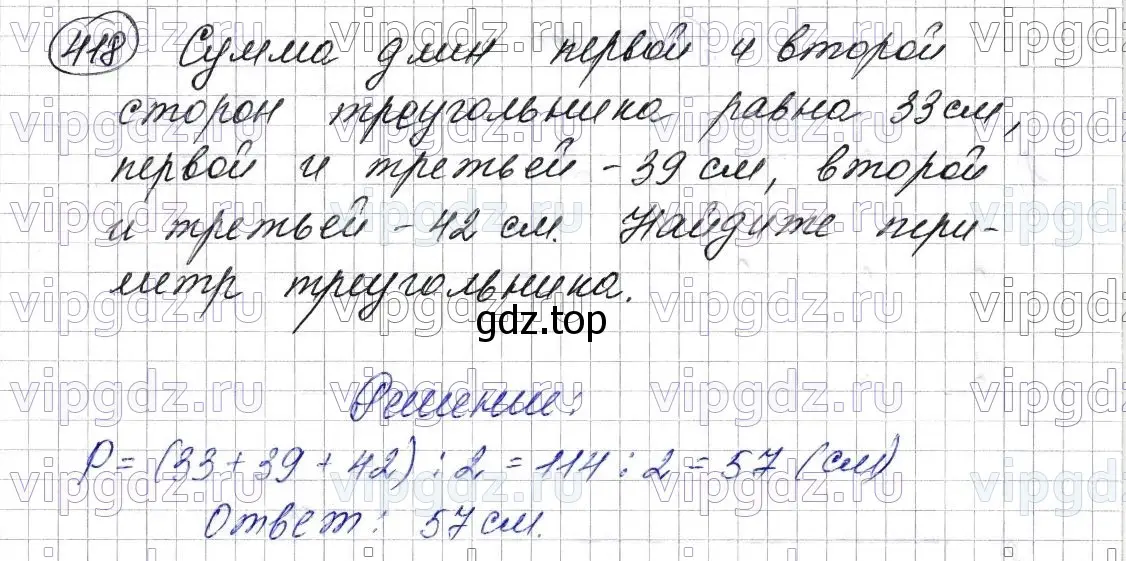 418 Сумма длин первой и второй
сторон треугольника равна 33 см,
первой и третьей - 39 см, второй
и третьей - 42 см. Найдите пери-
метр треугольника.
gdz.top
Решение:
P = (33 + 39 + 42) : 2 = 114 : 2 = 57 (см)
Ответ: 57 см.
vipgdz.ru